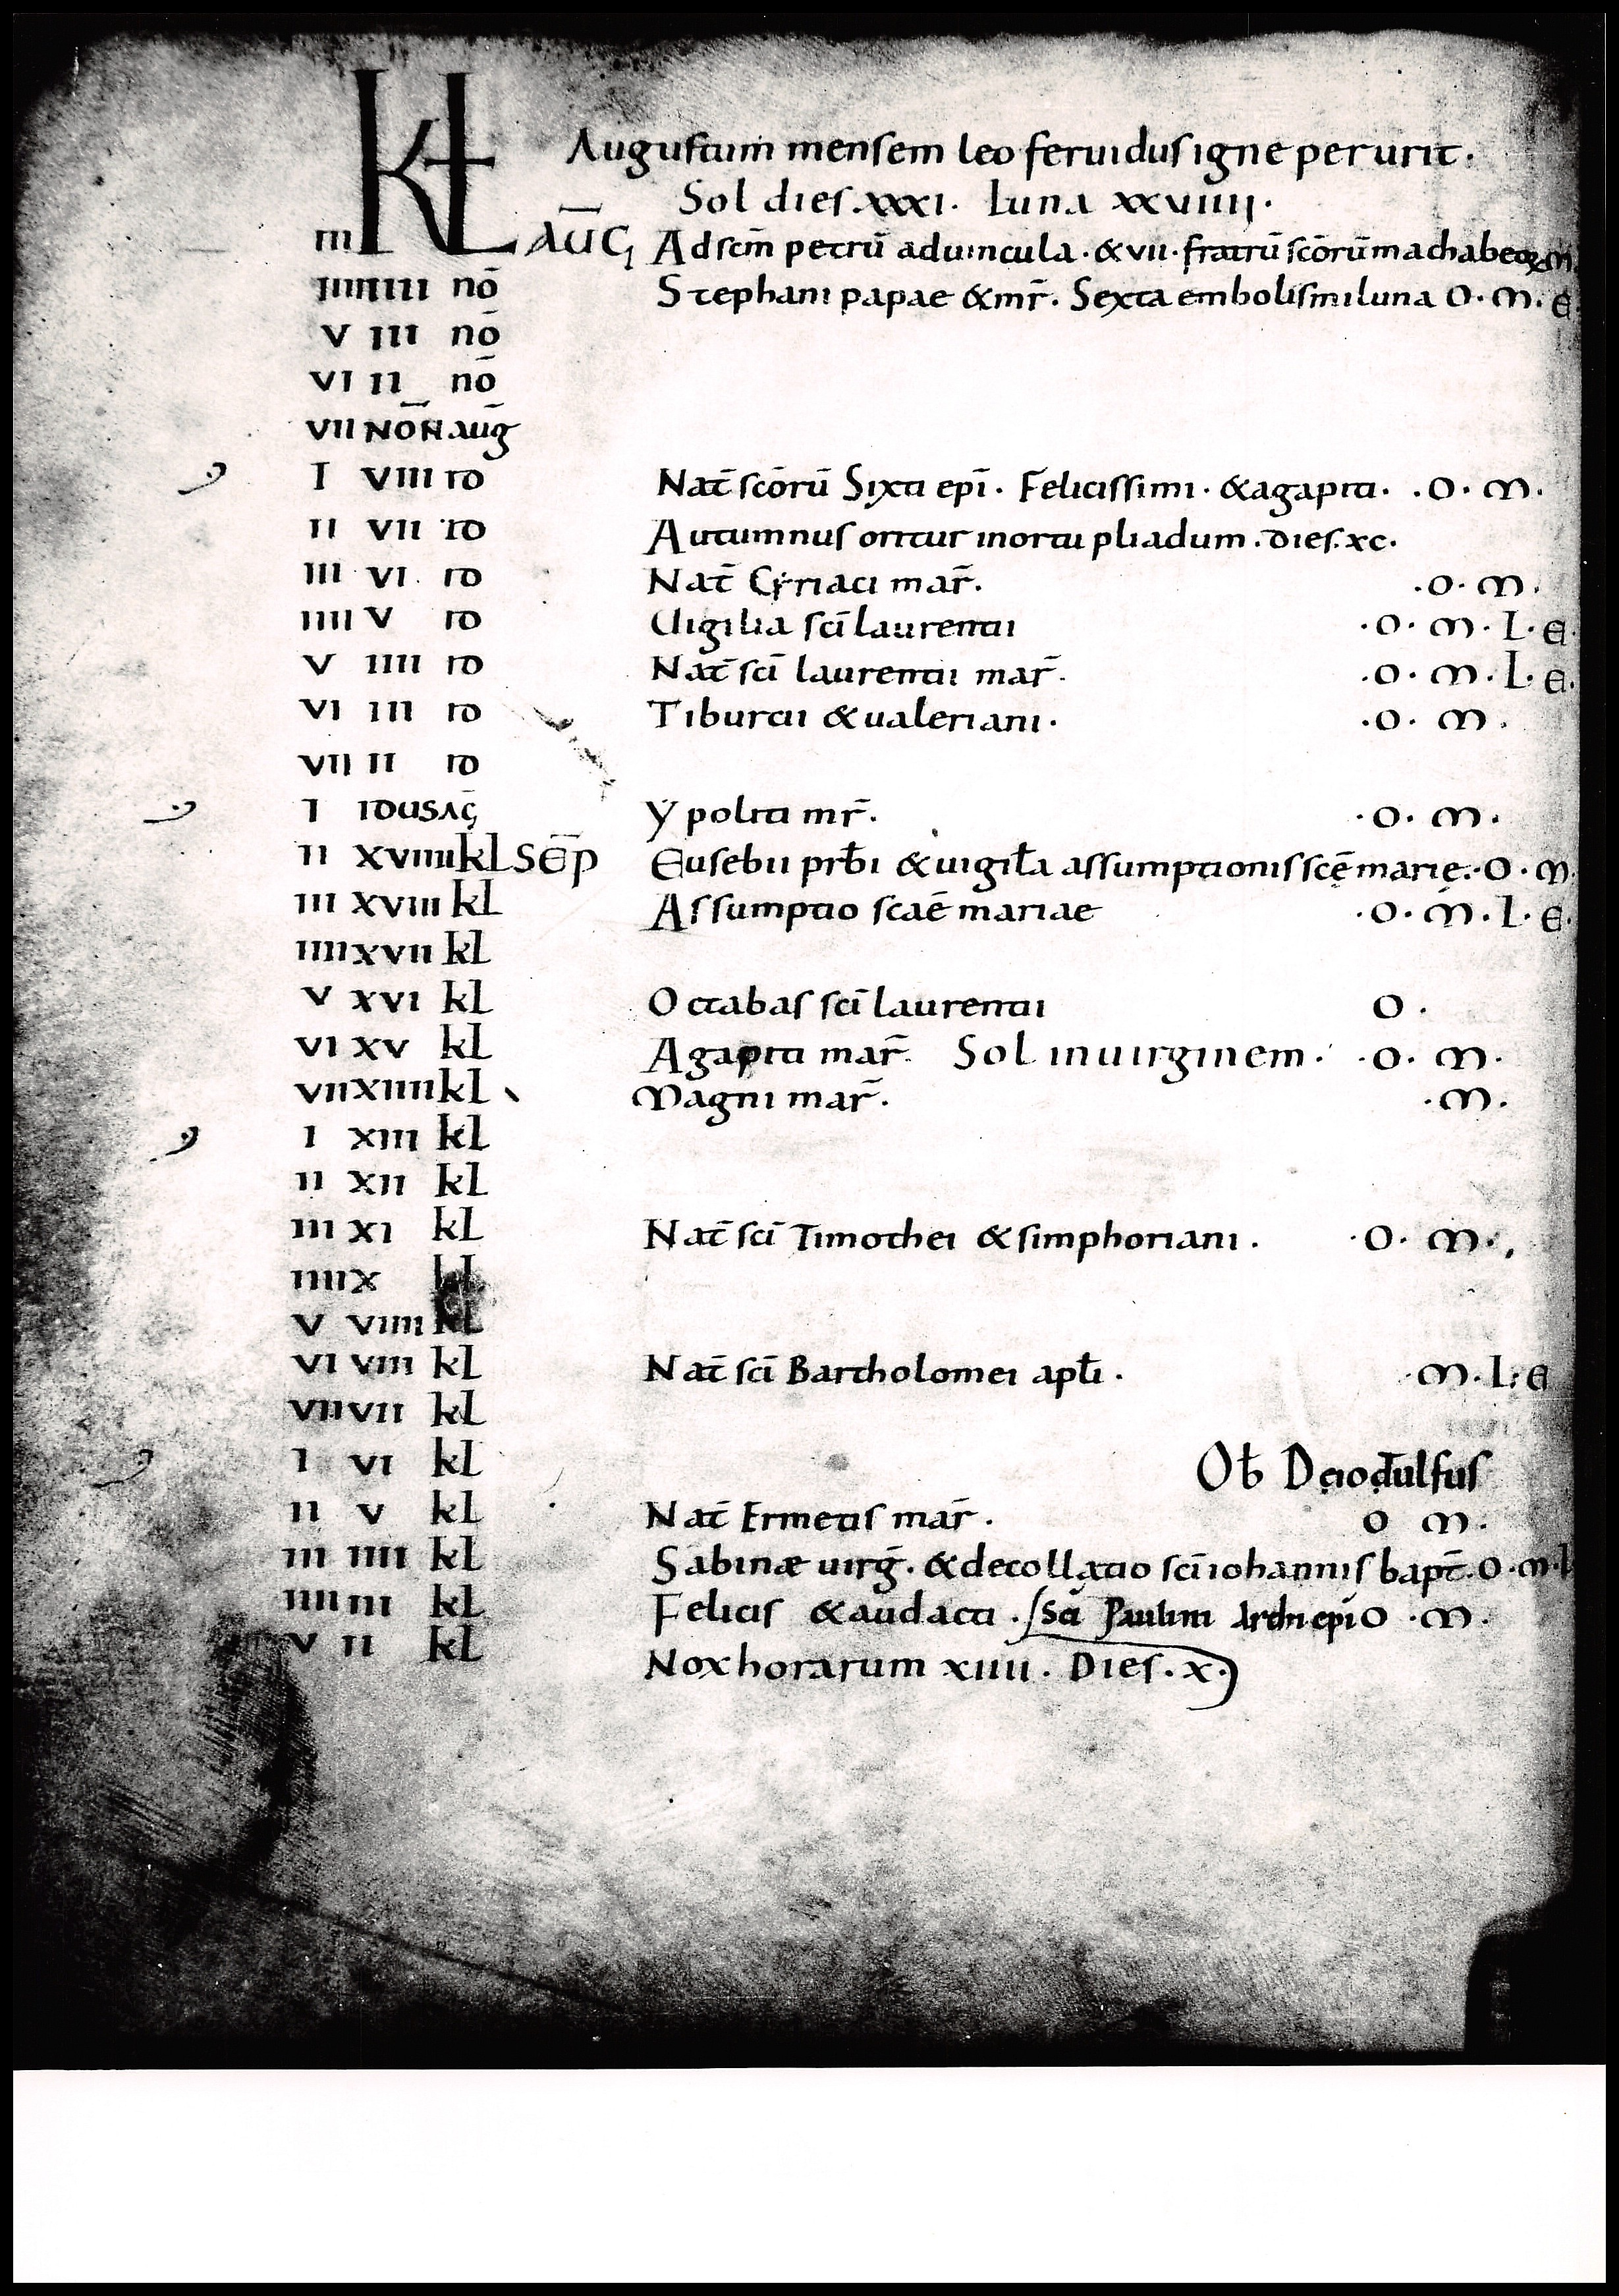 KL Augustum mensem leo feruidus igne perurit.
Sol dies .xxxi. Luna xxuiiii.
III AUG Ad scm̄ petrū aduincula. & vii. fratrū scōrū machabeoꝝ m
IIII IIII nō Stephani papae & mr̄. Sexta embolismi luna O. m. E.
V III nō
VI II nō
VII NON auḡ
I VIII ID Nat̄ scōrū Sixti epī. Felicissimi. & agapiti. .O. m.
II VII ID Autumnus oritur in ortu pliadum. dies. xc.
III VI ID Nat̄ Cyriaci mar̄. .O. m.
IIII V ID Uigilia scī laurentii .O. m. L. E.
V IIII ID Nat̄ scī laurentii mar̄. .O. m. L. E.
VI III ID Tiburtii & ualeriani. .O. m.
VII II ID
I IDUS AḠ Ypoliti mr̄. .O. m.
II XVIIII KL SEP̄ Eusebii prb̄i & uigiƚa assumptionis scē marie. .O. m.
III XVIII KL Assumptio scāe mariae .O. m. L. E.
IIII XVII KL
V XVI KL Octabas scī laurentii O.
VI XV KL Agapiti mar̄. Sol in uirginem. .O. m.
VII XIIII KL Magni mar̄. .m.
I XIII KL
II XII KL
III XI KL Nat̄ scī Timothei & simphoriani. .O. m.
IIII X KL
V VIIII KL
VI VIII KL Nat̄ scī Bartholomei apƚi. .m. L. E
VII VII KL
I VI KL Ob̄ Deiodulfus
II V KL Nat̄ Ermetis mar̄. O m.
III IIII KL Sabinæ uirḡ. & decollatio scī iohannis bapt̄. O. m. L
IIII III KL Felicis & audacti. Scī Paulini Archiepi O .m.
V II KL Nox horarum xiiii. Dies. x.